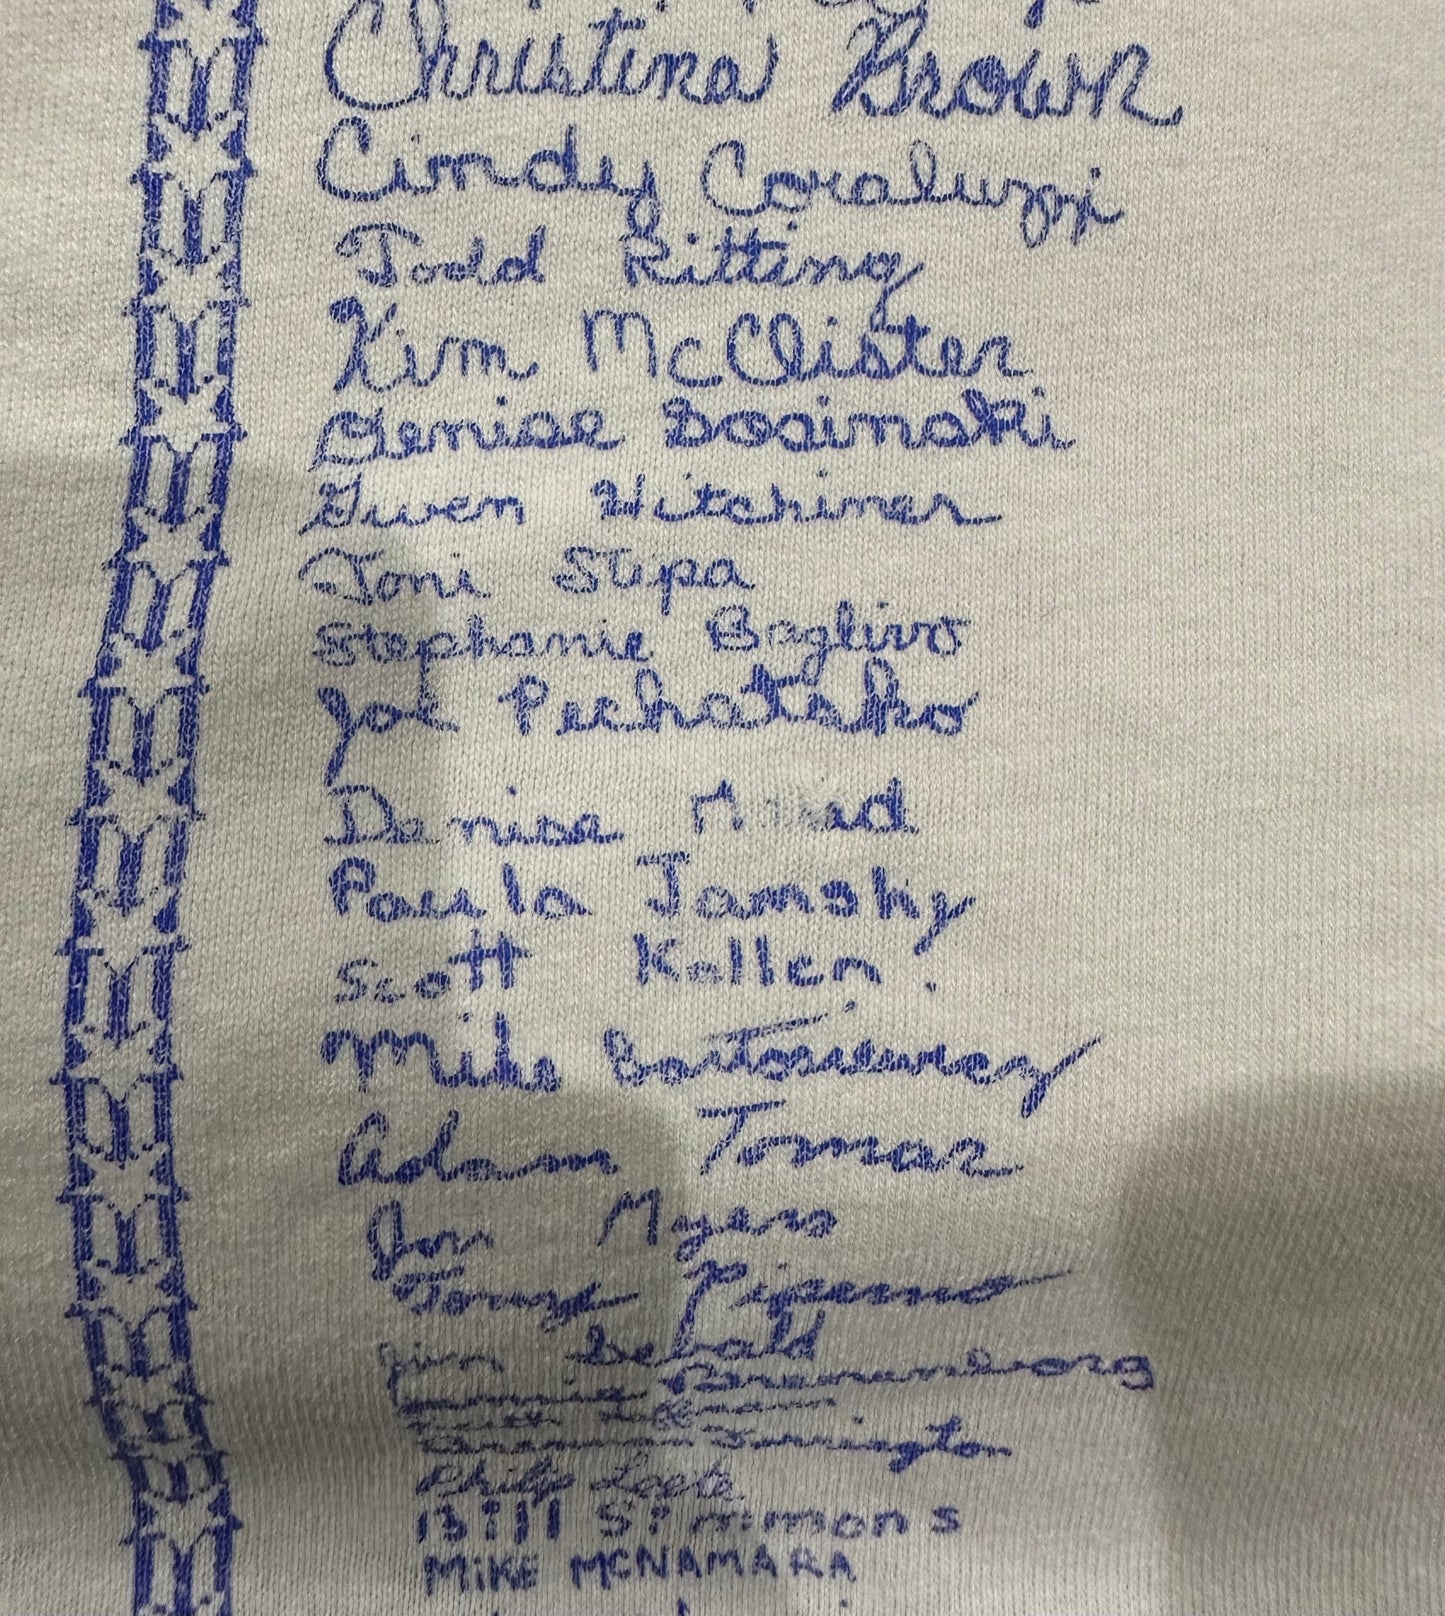 Christina Brown
Cindy Coraluzzi
Todd Kitting
Kim McClister
Denise Bosinski
Gwen Hitchiner
Toni Stipa
Stephanie Baglivo
Joe Pechatsko
Denise
Paula Jamsky
Scott Kellen
Mike Bartosiewicz
Adam Tomaz
Jon Myers
Pipermo
Jim Sebald
Brannenborg
Turrington
Philip Loeb
Bill Simmons
MiKE MCNAMARA